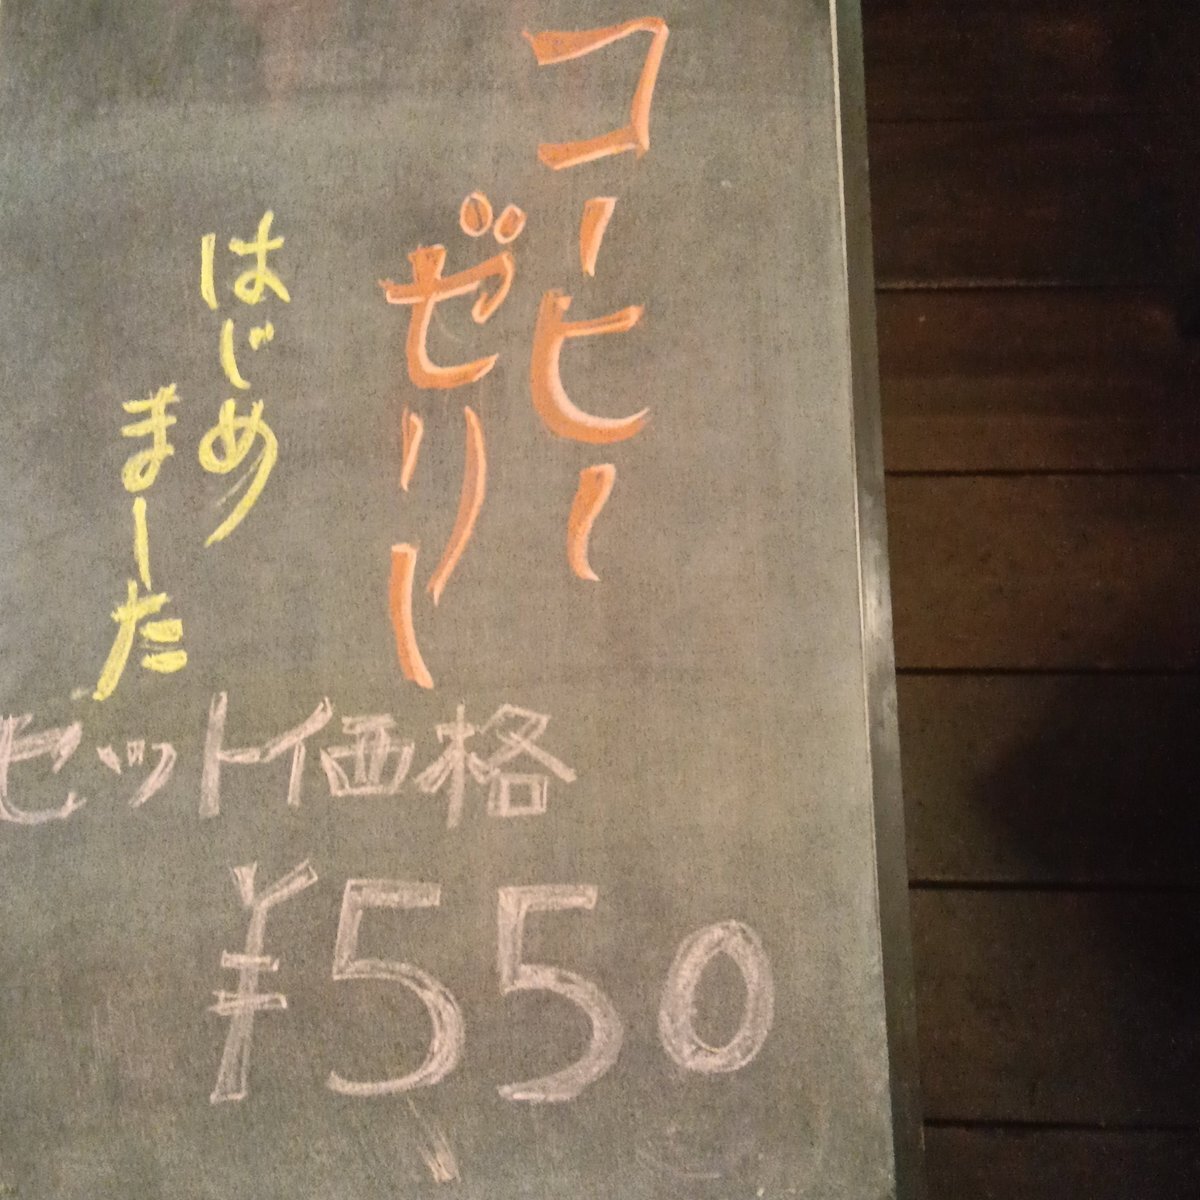 コーヒー
ゼリー
はじめ
まーた
セット価格
¥550